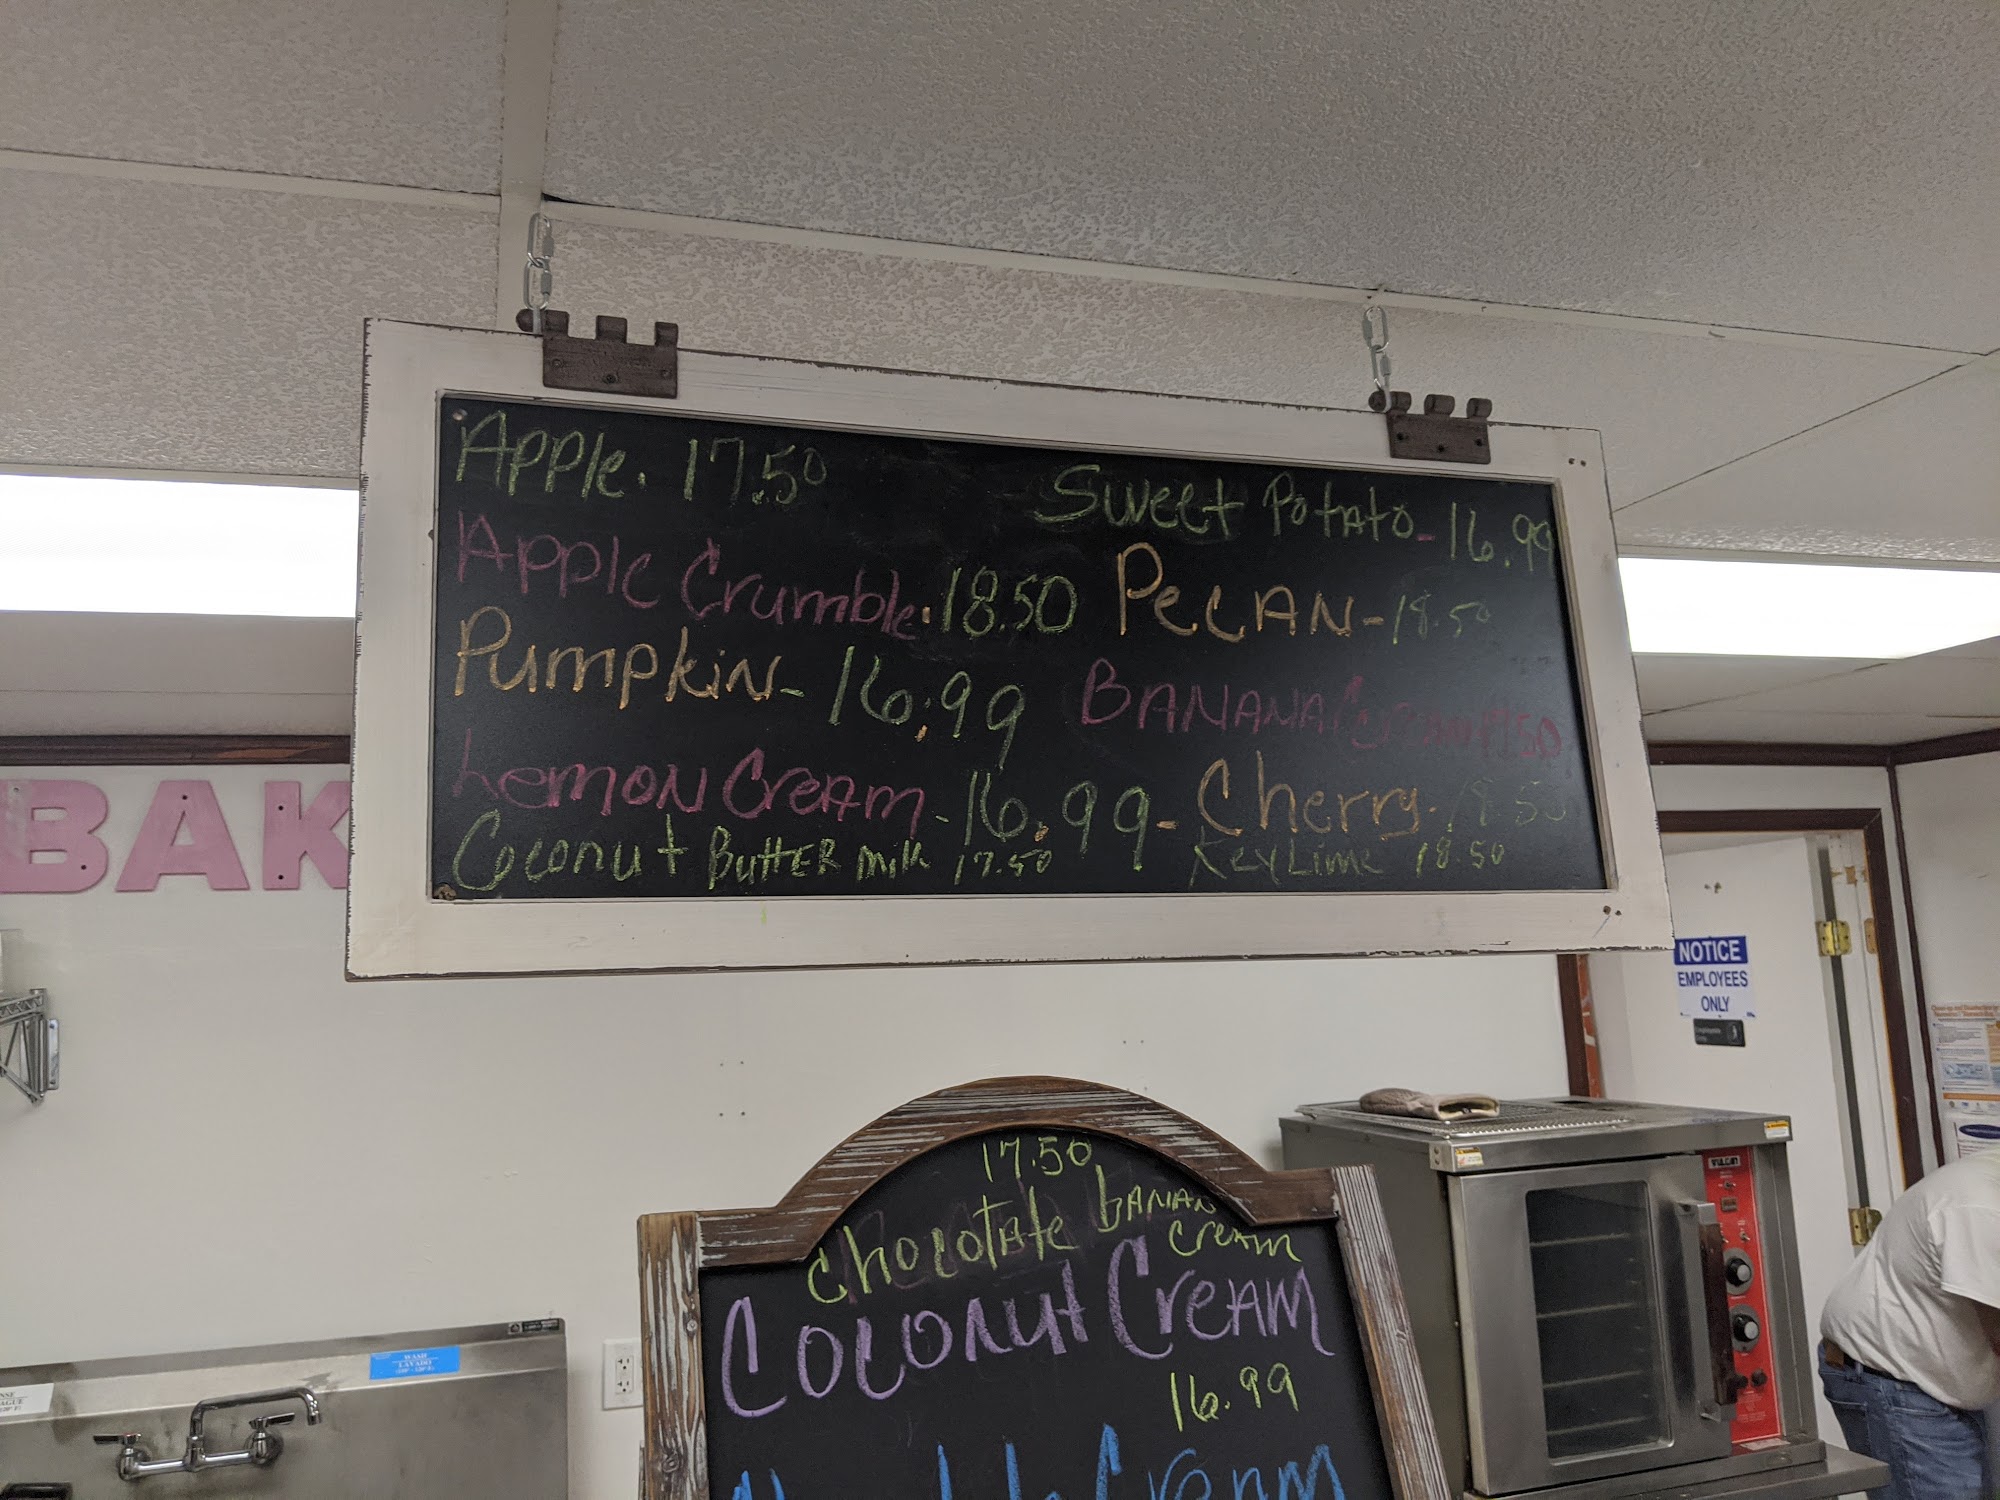 Apple. 17.50
Sweet Potato - 16.99
Apple Crumble. 18.50
Pecan - 18.50
Pumpkin - 16.99
Banana Cream 17.50
Lemon Cream - 16.99 -
Cherry - 18.50
Coconut Butter milk 17.50
Key Lime 18.50
BAK
NOTICE
EMPLOYEES
ONLY
17.50
Chocolate banan
cream
Coconut Cream
16.99
Cream
VULCAN
WASH
LAVADO